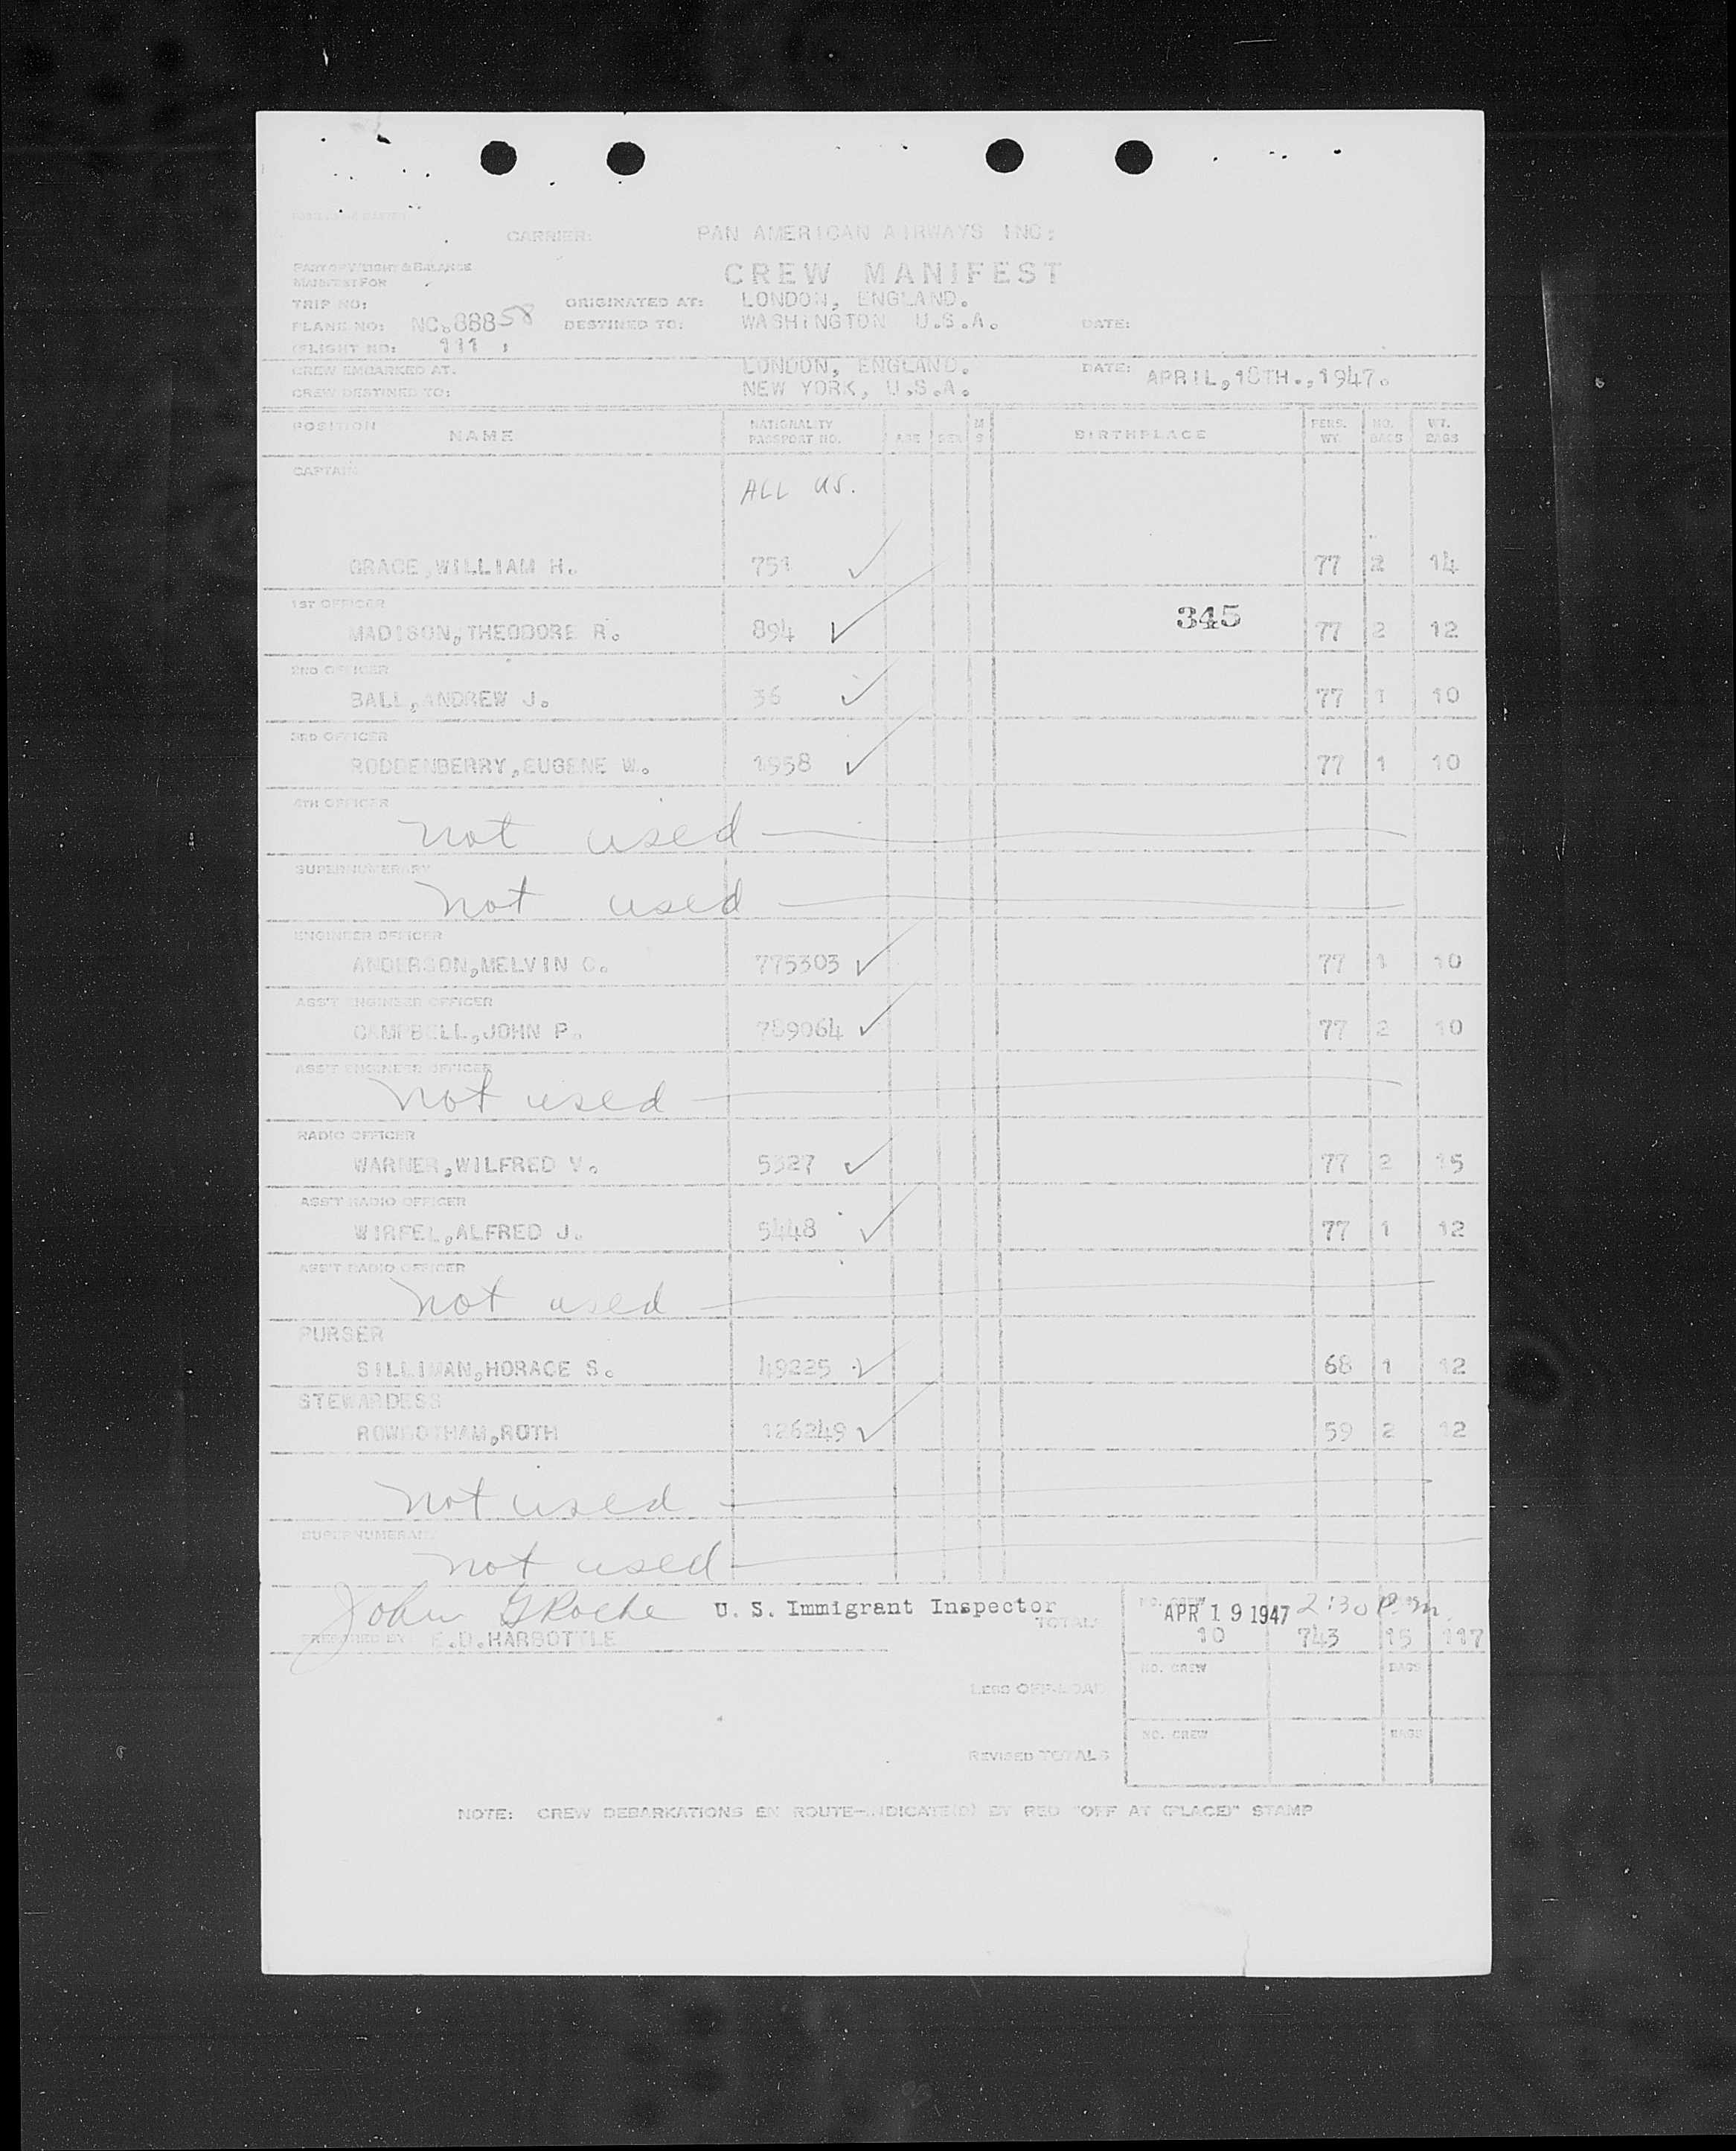 CARRIER: PAN AMERICAN AIRWAYS INC:
PART OF WEIGHT & BALANCE
MANIFEST FOR
CREW MANIFEST
TRIP NO: ORIGINATED AT: LONDON, ENGLAND.
PLANE NO: NC.88858 DESTINED TO: WASHINGTON U.S.A. DATE:
FLIGHT NO: 111
CREW EMBARKED AT. LONDON, ENGLAND. DATE: APRIL,18TH.,1947.
CREW DESTINED TO: NEW YORK, U.S.A.
POSITION NAME NATIONALITY PASSPORT NO. AGE SEX M S BIRTHPLACE PERS. WT. NO. BAGS WT. BAGS
CAPTAIN
ALL US.
GRACE,WILLIAM H. 751 77 2 14
1ST OFFICER
345
MADISON,THEODORE R. 894 77 2 12
2ND OFFICER
BALL,ANDREW J. 36 77 1 10
3RD OFFICER
RODDENBERRY,EUGENE W. 1958 77 1 10
4TH OFFICER
not used
SUPERNUMERARY
not used
ENGINEER OFFICER
ANDERSON,MELVIN C. 775303 77 1 10
ASS'T ENGINEER OFFICER
CAMPBELL,JOHN P. 789064 77 2 10
ASS'T ENGINEER OFFICER
not used
RADIO OFFICER
WARNER,WILFRED V. 5327 77 2 15
ASS'T RADIO OFFICER
WIRFEL,ALFRED J. 5448 77 1 12
ASS'T RADIO OFFICER
not used
PURSER
SILLIMAN,HORACE S. 49225 68 1 12
STEWARDESS
ROWBOTHAM,RUTH 126249 59 2 12
not used
SUPERNUMERARY
not used
John G Roche U. S. Immigrant Inspector TOTALS NO. CREW APR 19 1947 2:30 P.m.
PREPARED BY: E.D.HARBOTTLE 10 743 15 117
NO. CREW BAGS
LESS OFF-LOAD
NO. CREW BAGS
REVISED TOTALS
NOTE: CREW DEBARKATIONS EN ROUTE-INDICATE(D) BY RED "OFF AT (PLACE)" STAMP